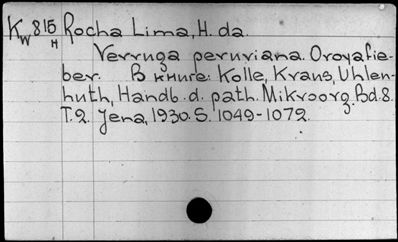 Kw 815 H Rocha Lima, H. da.
Verruga peruviana. Oroyafie-
ber. В книге: Kolle, Kraus, Uhlen-
huth, Handb. d. path. Mikroorg. Bd. 8.
T. 2. Jena, 1930. S. 1049-1072.